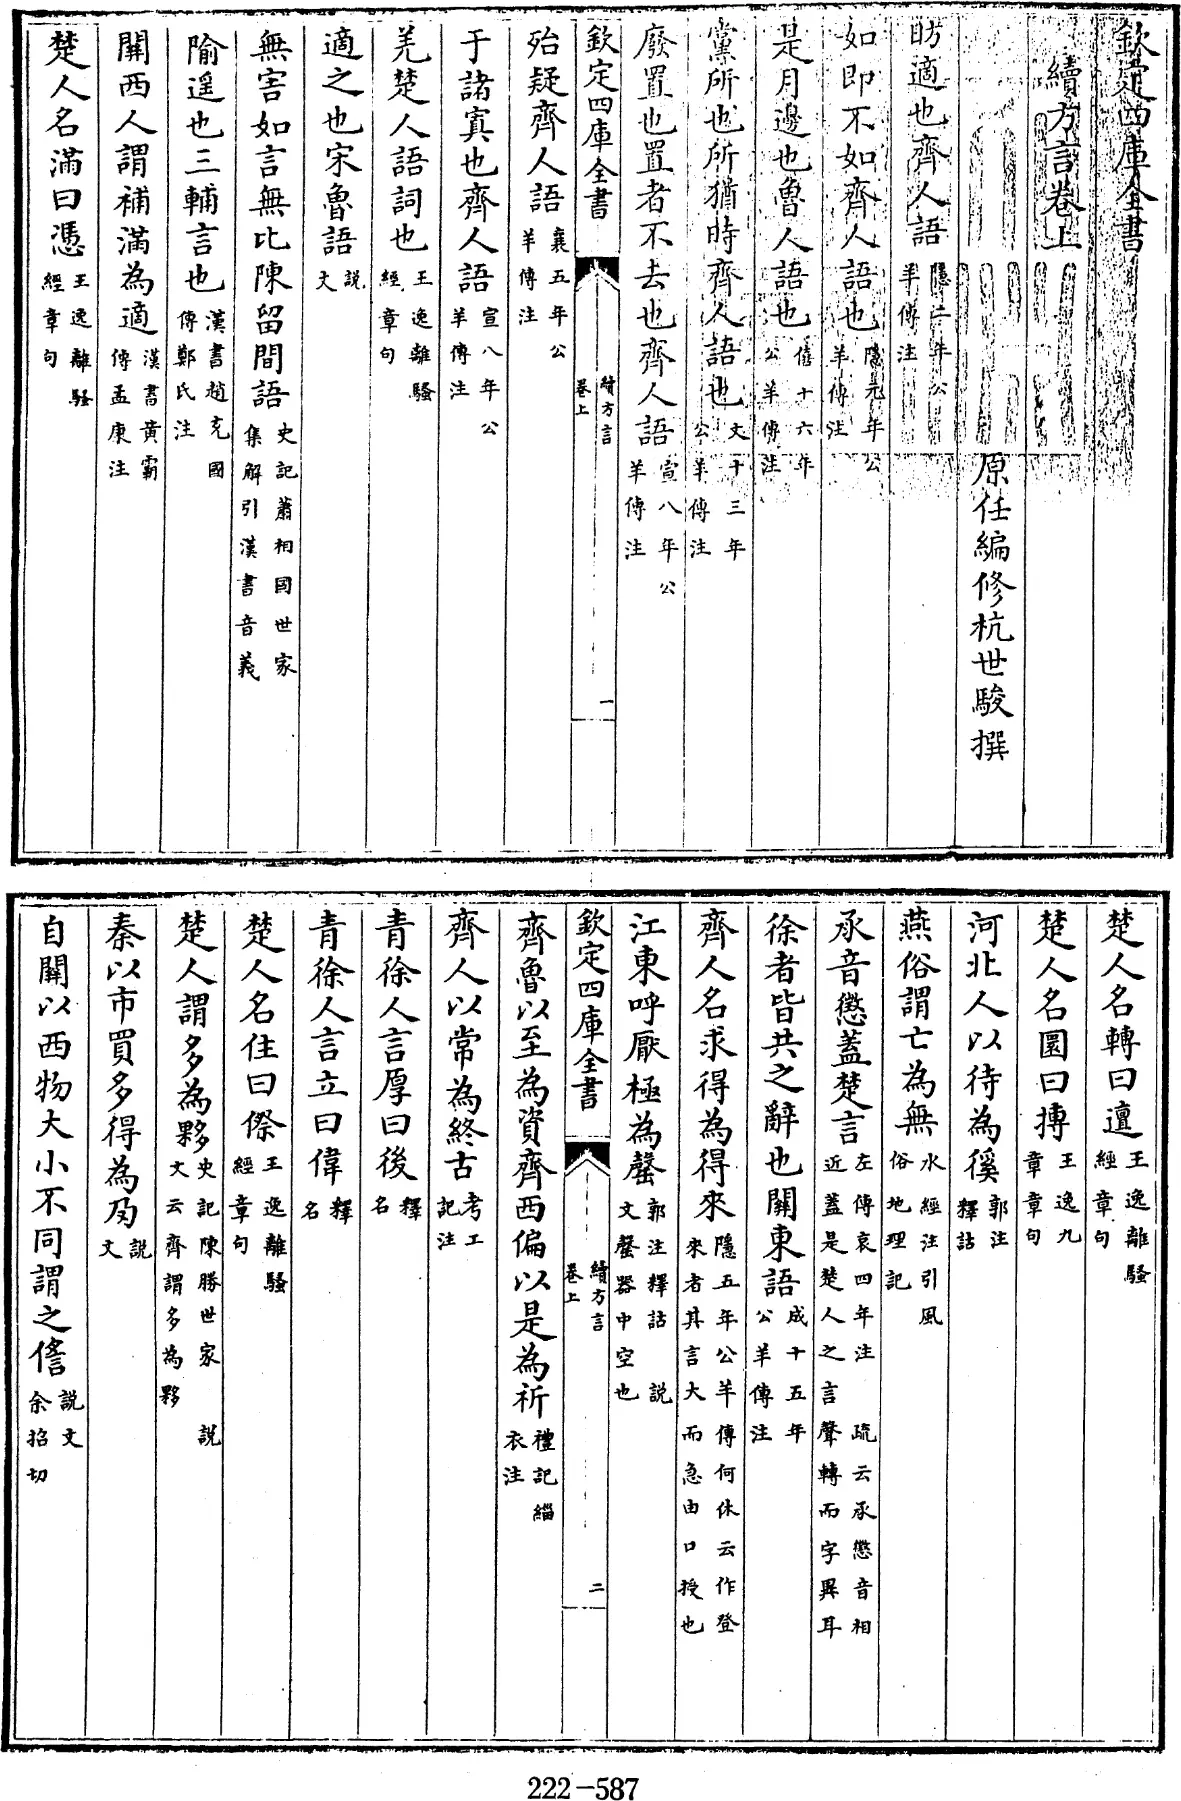 欽定四庫全書
續方言卷上
原任編修杭世駿撰
昉適也齊人語隱二年公羊傳注
如即不如齊人語也隱元年公羊傳注
是月邊也魯人語也僖十六年公羊傳注
黨所也所猶時齊人語也文十三年公羊傳注
廢置也置者不去也齊人語宣八年公羊傳注
欽定四庫全書 續方言卷上 一
殆疑齊人語襄五年公羊傳注
于諸寘也齊人語宣八年公羊傳注
羌楚人語詞也王逸離騷經章句
適之也宋魯語說文
無害如言無比陳留間語史記蕭相国世家集解引漢書音義
隃遥也三輔言也漢書趙充國傳鄭氏注
關西人謂補滿為適漢書黃霸傳孟康注
楚人名滿曰憑王逸離騷經章句
楚人名轉曰邅王逸離騷經章句
楚人名圜曰摶王逸九章章句
河北人以待為徯郭注釋詁
燕俗謂亡為無水經注引風俗地理記
承音懲蓋楚言左傳哀四年注 疏云承懲音相近蓋是楚人之言聲轉而字異耳
徐者皆共之辭也關東語成十五年公羊傳注
齊人名求得為得來隱五年公羊傳何休云作登來者其言大而急由口授也
江東呼厭極為罄郭注釋詁 說文罄器中空也
欽定四庫全書 續方言卷上 二
齊魯以至為資齊西偏以是為祈禮記緇衣注
齊人以常為終古考工記注
青徐人言厚曰後釋名
青徐人言立曰偉釋名
楚人名住曰傺王逸離騷經章句
楚人謂多為夥史記陳勝世家 說文云齊謂多為夥
秦以市買多得為夃說文
自關以西物大小不同謂之㒑說文余招切
222-587